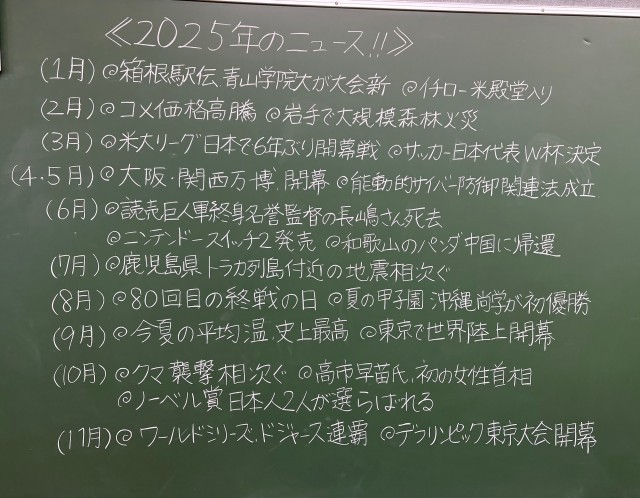 ≪2025年のニュース!!≫
(1月)@箱根駅伝、青山学院大が大会新 @イチロー米殿堂入り
(2月)@コメ価格高騰 @岩手で大規模森林火災
(3月)@米大リーグ日本で6年ぶり開幕戦 @サッカー日本代表W杯決定
(4・5月)@大阪・関西万博、開幕 @能動的サイバー防御関連法成立
(6月)@読売巨人軍終身名誉監督の長嶋さん死去
@ニンテンドースイッチ2発売 @和歌山のパンダ中国に帰還
(7月)@鹿児島県トカラ列島付近の地震相次ぐ
(8月)@80回目の終戦の日 @夏の甲子園 沖縄尚学が初優勝
(9月)@今夏の平均温、史上最高 @東京で世界陸上開幕
(10月)@クマ襲撃相次ぐ @高市早苗氏、初の女性首相
@ノーベル賞日本人2人が選らばれる
(11月)@ワールドシリーズ、ドジャース連覇 @デフリンピック東京大会開幕